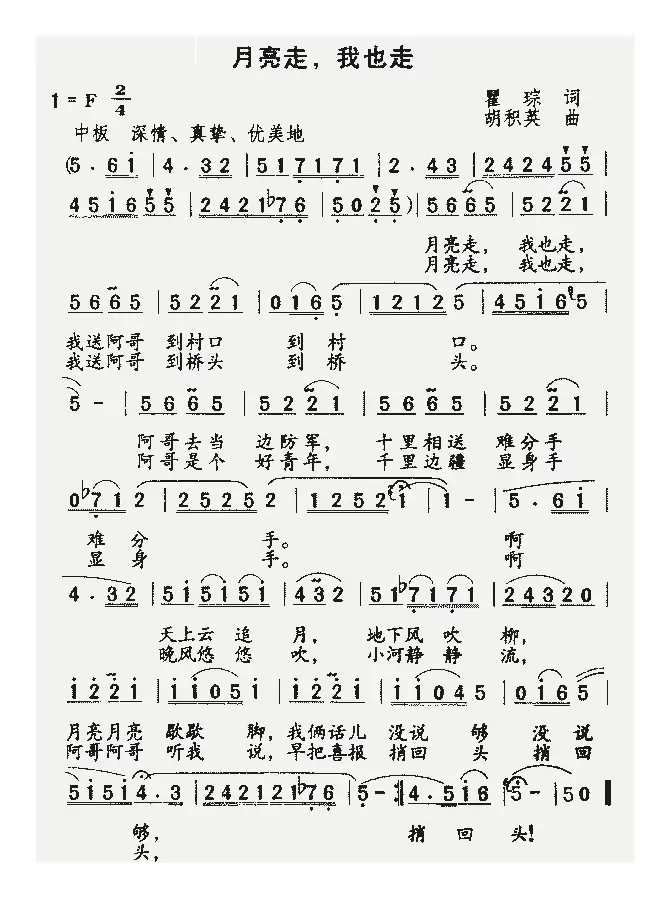 月亮走，我也走
1 = F 2/4
瞿 琮 词
胡积英 曲
中板 深情、真挚、优美地
(5 · 6 i | 4 · 3 2 | 5 1 7 1 7 1 | 2 · 4 3 | 2 4 2 4 5 5 |
4 5 1 6 5 5 | 2 4 2 1 ♭7 6 | 5 0 2 5 ) | 5 6 6 5 | 5 2 2 1 |
月亮走， 我也走，
月亮走， 我也走，
5 6 6 5 | 5 2 2 1 | 0 1 6 5 | 1 2 1 2 5 | 4 5 1 6 5
我送阿哥 到村口 到 村 口。
我送阿哥 到桥头 到 桥 头。
5 - | 5 6 6 5 | 5 2 2 1 | 5 6 6 5 | 5 2 2 1 |
阿哥去当 边防军， 十里相送 难分手
阿哥是个 好青年， 千里边疆 显身手
0 ♭7 1 2 | 2 5 2 5 2 | 1 2 5 2 1 | 1 - | 5 · 6 i |
难 分 手。 啊
显 身 手。 啊
4 · 3 2 | 5 i 5 i 5 i | 4 3 2 | 5 1 ♭7 1 7 1 | 2 4 3 2 0 |
天上云 追 月， 地下风 吹 柳，
晚风悠 悠 吹， 小河静 静 流，
i 2 2 i | i i 0 5 i | i 2 2 i | i i 0 4 5 | 0 i 6 5
月亮月亮 歇歇 脚，我俩话儿 没说 够 没 说
阿哥阿哥 听我 说，早把喜报 捎回 头 捎 回
5 i 5 i 4 · 3 | 2 4 2 1 2 1 ♭7 6 | 5 - :| 4 · 5 1 6 | 5 - | 5 0 ‖
够， 捎 回 头！
头，